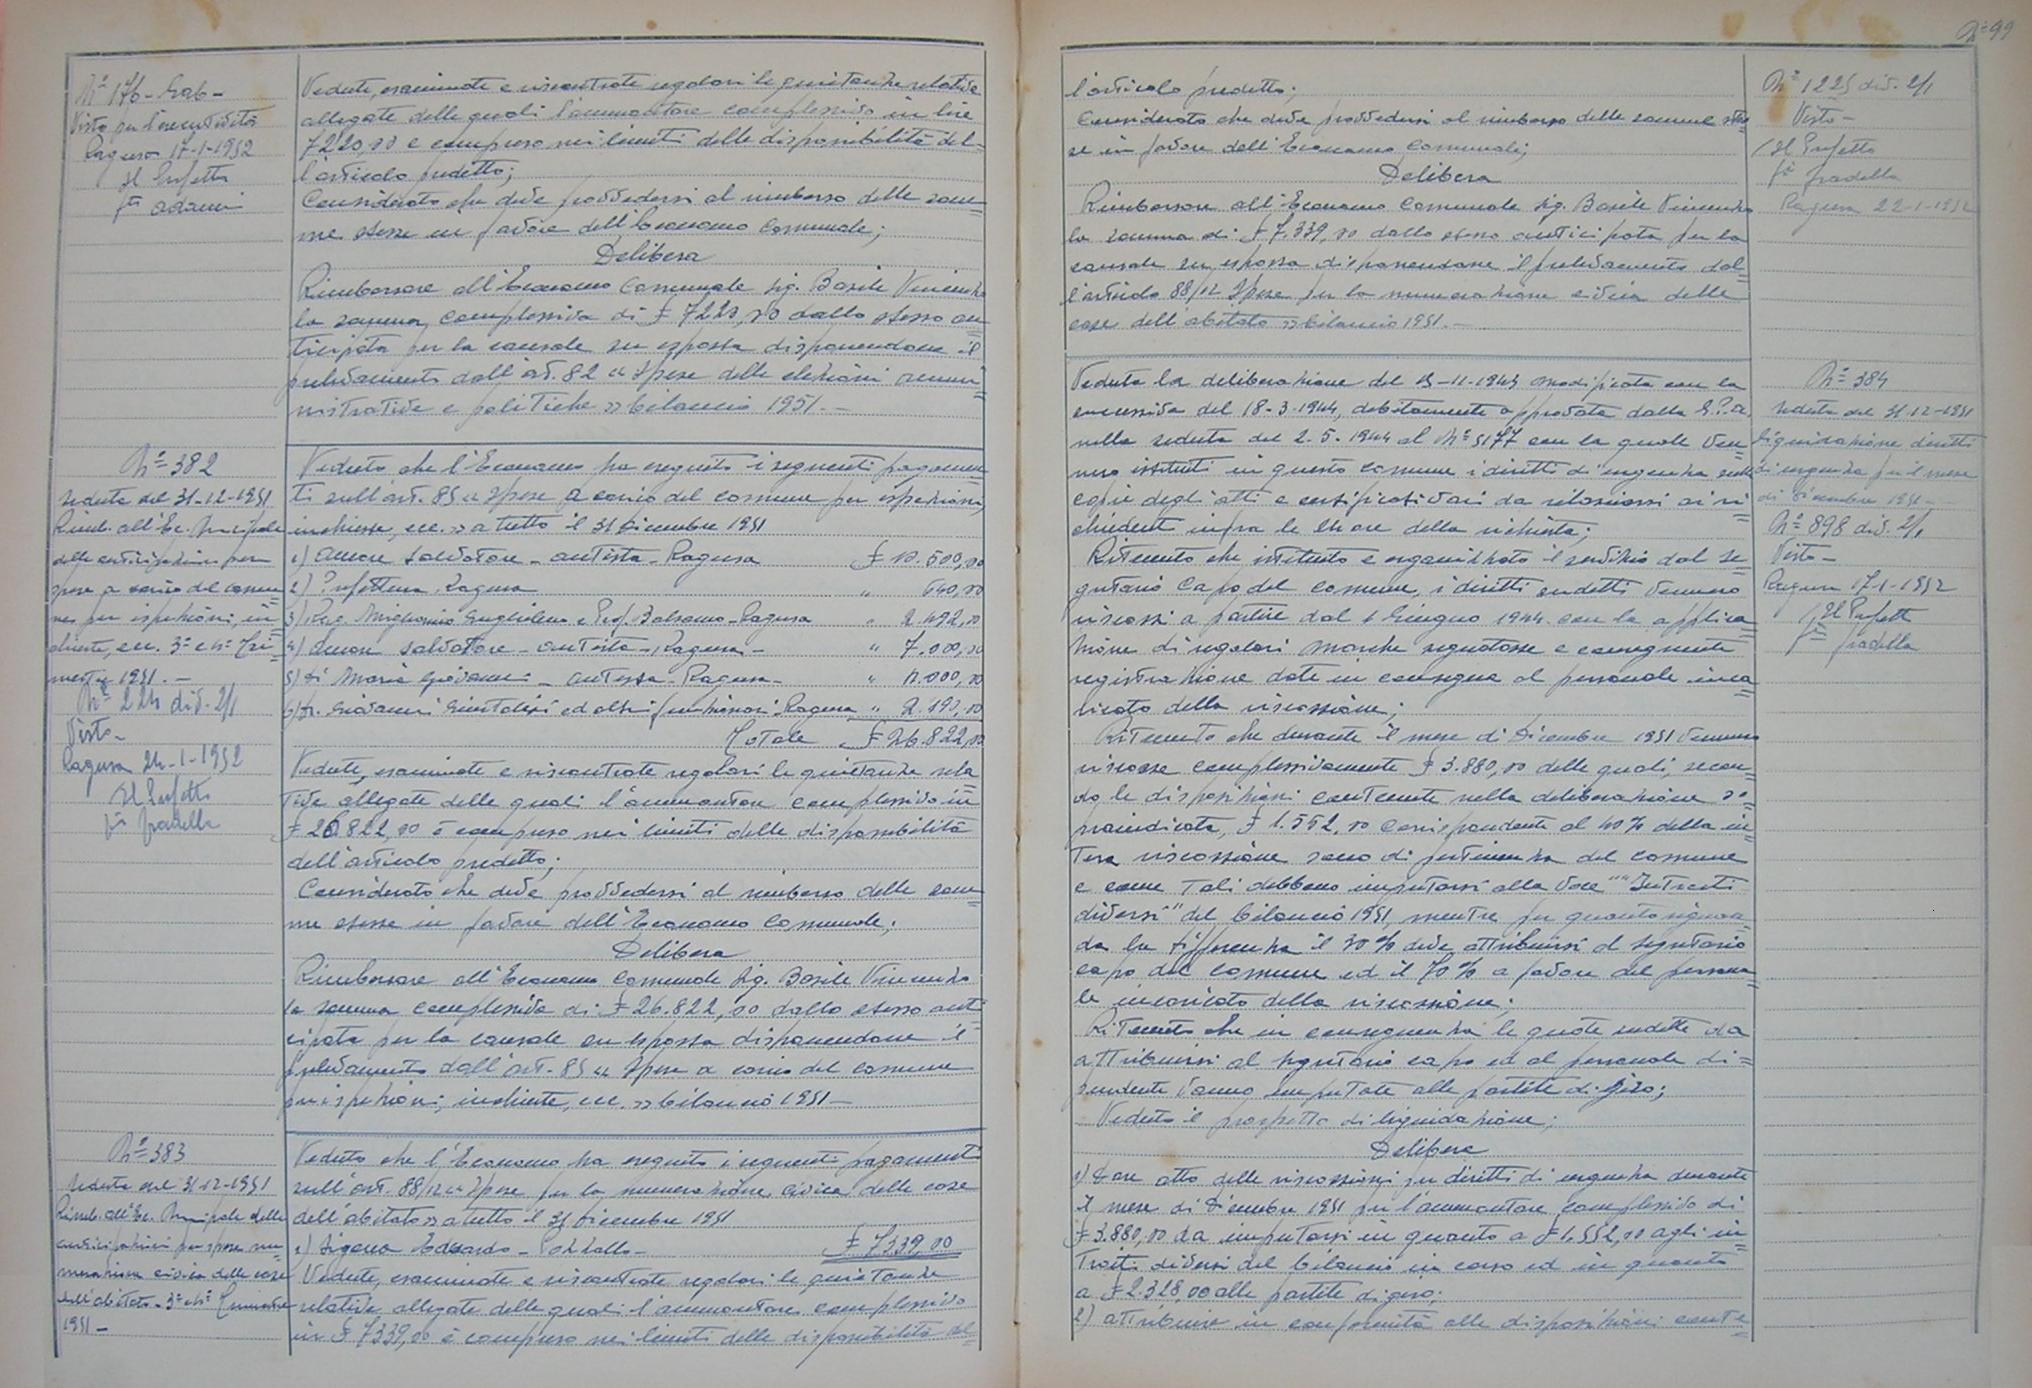 Nº 99
Nº 176 - Gab -
Visto per l'esecutività
Ragusa 17-1-1952
Il Prefetto
fto Adami
Vedute, esaminate e riscontrate regolari le quietanze relative
allegate delle quali l'ammontare complessivo in lire
7220,00 è compreso nei limiti delle disponibilità del-
l'articolo predetto;
Considerato che deve provvedersi al rimborso delle som=
me stesse in favore dell'Economo Comunale;
Delibera
Rimborsare all'Economo Comunale Sig. Basile Vincenzo
la somma complessiva di £ 7220,00 dallo stesso an=
ticipata per la causale su esposta disponendone il
prelevamento dall'art. 82 "Spese delle elezioni ammi=
nistrative e politiche" bilancio 1951.-
Nº 382
Seduta del 31-12-1951
Rimb. all'Ec. Municipale
delle anticipazioni per
spese a carico del comu=
ne per ispezioni, in=
chieste, ecc. 3º e 4º Tri=
mestre 1951.-
Nº 224 div. 2/1
Visto-
Ragusa 24-1-1952
Il Prefetto
fto Fradella
Veduto che l'Economo ha eseguito i seguenti pagamen
ti sull'art. 85 "Spese a carico del comune per ispezioni,
inchieste, ecc." a tutto il 31 Dicembre 1951
1) Amore Salvatore - autista - Ragusa £ 10.500,00
2) Prefettura Ragusa " 640,00
3) Rag. Guglielmo e Prof. Balsamo - Ragusa " 2.492,00
4) Amore Salvatore - autista - Ragusa - " 7.000,00
5) Di Maria Giovanni - autista - Ragusa - "
6) Giovanni ed altri funzionari Ragusa " 2.190,00
Totale £ 26.822,00
Vedute, esaminate e riscontrate regolari le quietanze rela
tive allegate delle quali l'ammontare complessivo in
£ 26.822,00 è compreso nei limiti delle disponibilità
dell'articolo predetto;
Considerato che deve provvedersi al rimborso delle som
me stesse in favore dell'Economo Comunale;
Delibera
Rimborsare all'Economo Comunale Sig. Basile Vincenzo
la somma complessiva di £ 26.822,00 dallo stesso anti
cipata per la causale su esposta disponendone il
prelevamento dall'art. 85 "Spese a carico del comune
per ispezioni, inchieste, ecc." bilancio 1951-
Nº 383
Seduta del 31-12-1951
Rimb. all'Ec. Municipale delle
anticipazioni per spese nu=
merazione civica delle case
dell'abitato - 3º e 4º Trimestre
1951-
Veduto che l'Economo ha eseguito i seguenti pagamenti
sull'art. 88/12 "Spese per la numerazione civica delle case
dell'abitato" a tutto il 31 Dicembre 1951
1) Edoardo - Pozzallo - £ 7339,00
Vedute, esaminate e riscontrate regolari le quietanze
relative allegate delle quali l'ammontare complessivo
in £ 7339,00 è compreso nei limiti delle disponibilità del=
l'articolo predetto;
Considerato che deve provvedersi al rimborso delle somme stes=
se in favore dell'Economo Comunale;
Delibera
Rimborsare all'Economo Comunale Sig. Basile Vincenzo
la somma di £ 7.339,00 dallo stesso anticipata per la
causale su esposta disponendone il prelevamento dal=
l'articolo 88/12 "Spese per la numerazione civica delle
case dell'abitato" bilancio 1951.-
Nº 1225 div. 2/1
Visto -
Il Prefetto
fto Fradella
Ragusa 22-1-1952
Veduta la deliberazione del 13-11-1943 modificata con la
successiva del 18-3-1944, debitamente approvata dalla G.P.A.
nella seduta del 2.5.1944 al Nº 5177 con la quale ven=
nero istituiti in questo comune i diritti d'urgenza sulle
copie degli atti e certificati vari da rilasciarsi ai ri=
chiedenti infra le 24 ore della richiesta;
Ritenuto che istituito e organizzato il servizio dal se=
gretario Capo del comune, i diritti sudetti vennero
riscossi a partire dal 1 Giugno 1944 con la applica=
zione di regolari marche segnatasse e conseguente
registrazione date in consegna al personale inca=
ricato della riscossione;
Ritenuto che durante il mese di Dicembre 1951 vennero
riscosse complessivamente £ 3.880,00 delle quali, secon=
do le disposizioni contenute nella deliberazione so=
praindicata, £ 1.552,00 corrispondente al 40% della in=
tera riscossione sono di pertinenza del comune
e come tali debbono imputarsi alla voce "Introiti
diversi" del bilancio 1951, mentre per quanto riguar=
da la differenza il 30% deve attribuirsi al segretario
capo del comune ed il 70% a favore del persona=
le incaricato della riscossione;
Ritenuto che in conseguenza le quote sudette da
attribuirsi al segretario capo ed al personale di=
pendente vanno imputate alle partite di giro;
Veduto il prospetto di liquidazione;
Delibera
1) Dare atto delle riscossioni per diritti di urgenza durante
il mese di Dicembre 1951 per l'ammontare complessivo di
£ 3.880,00 da imputarsi in quanto a £ 1.552,00 agli in=
troiti diversi del bilancio in corso ed in quanto
a £ 2.328,00 alle partite di giro;
2) attribuire in conformità alle disposizioni conte=
Nº 384
Seduta del 31-12-1951
Liquidazione diritti
d'urgenza per il mese
di Dicembre 1951-
Nº 898 div. 2/1
Visto-
Ragusa 17-1-1952
Il Prefetto
fto Fradella